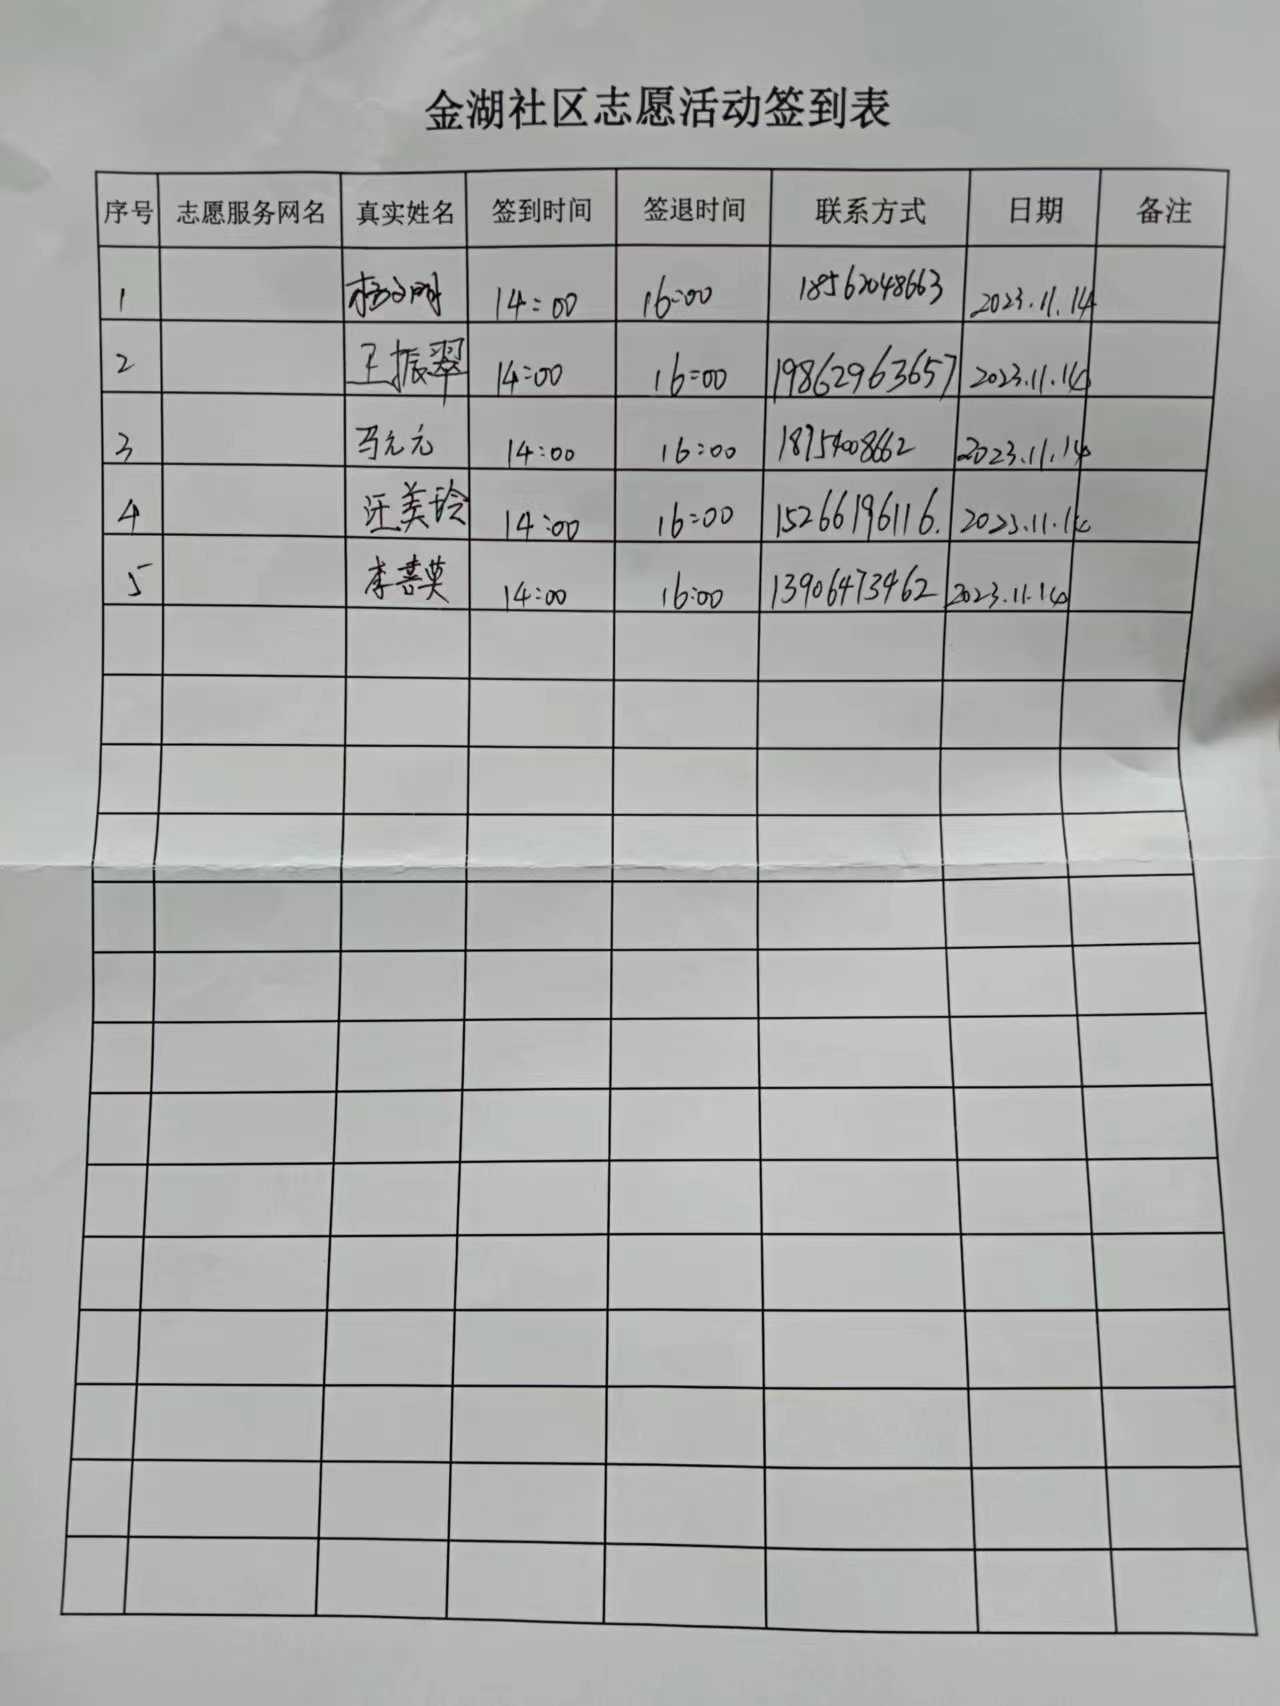 金湖社区志愿活动签到表
序号 志愿服务网名 真实姓名 签到时间 签退时间 联系方式 日期 备注
1 14:00 16:00 18562048663 2023.11.14
2 王振翠 14:00 16:00 19862963657 2023.11.14
3 马元元 14:00 16:00 2023.11.14
4 汪美玲 14:00 16:00 15266196116. 2023.11.14
5 李善英 14:00 16:00 13906473462 2023.11.14